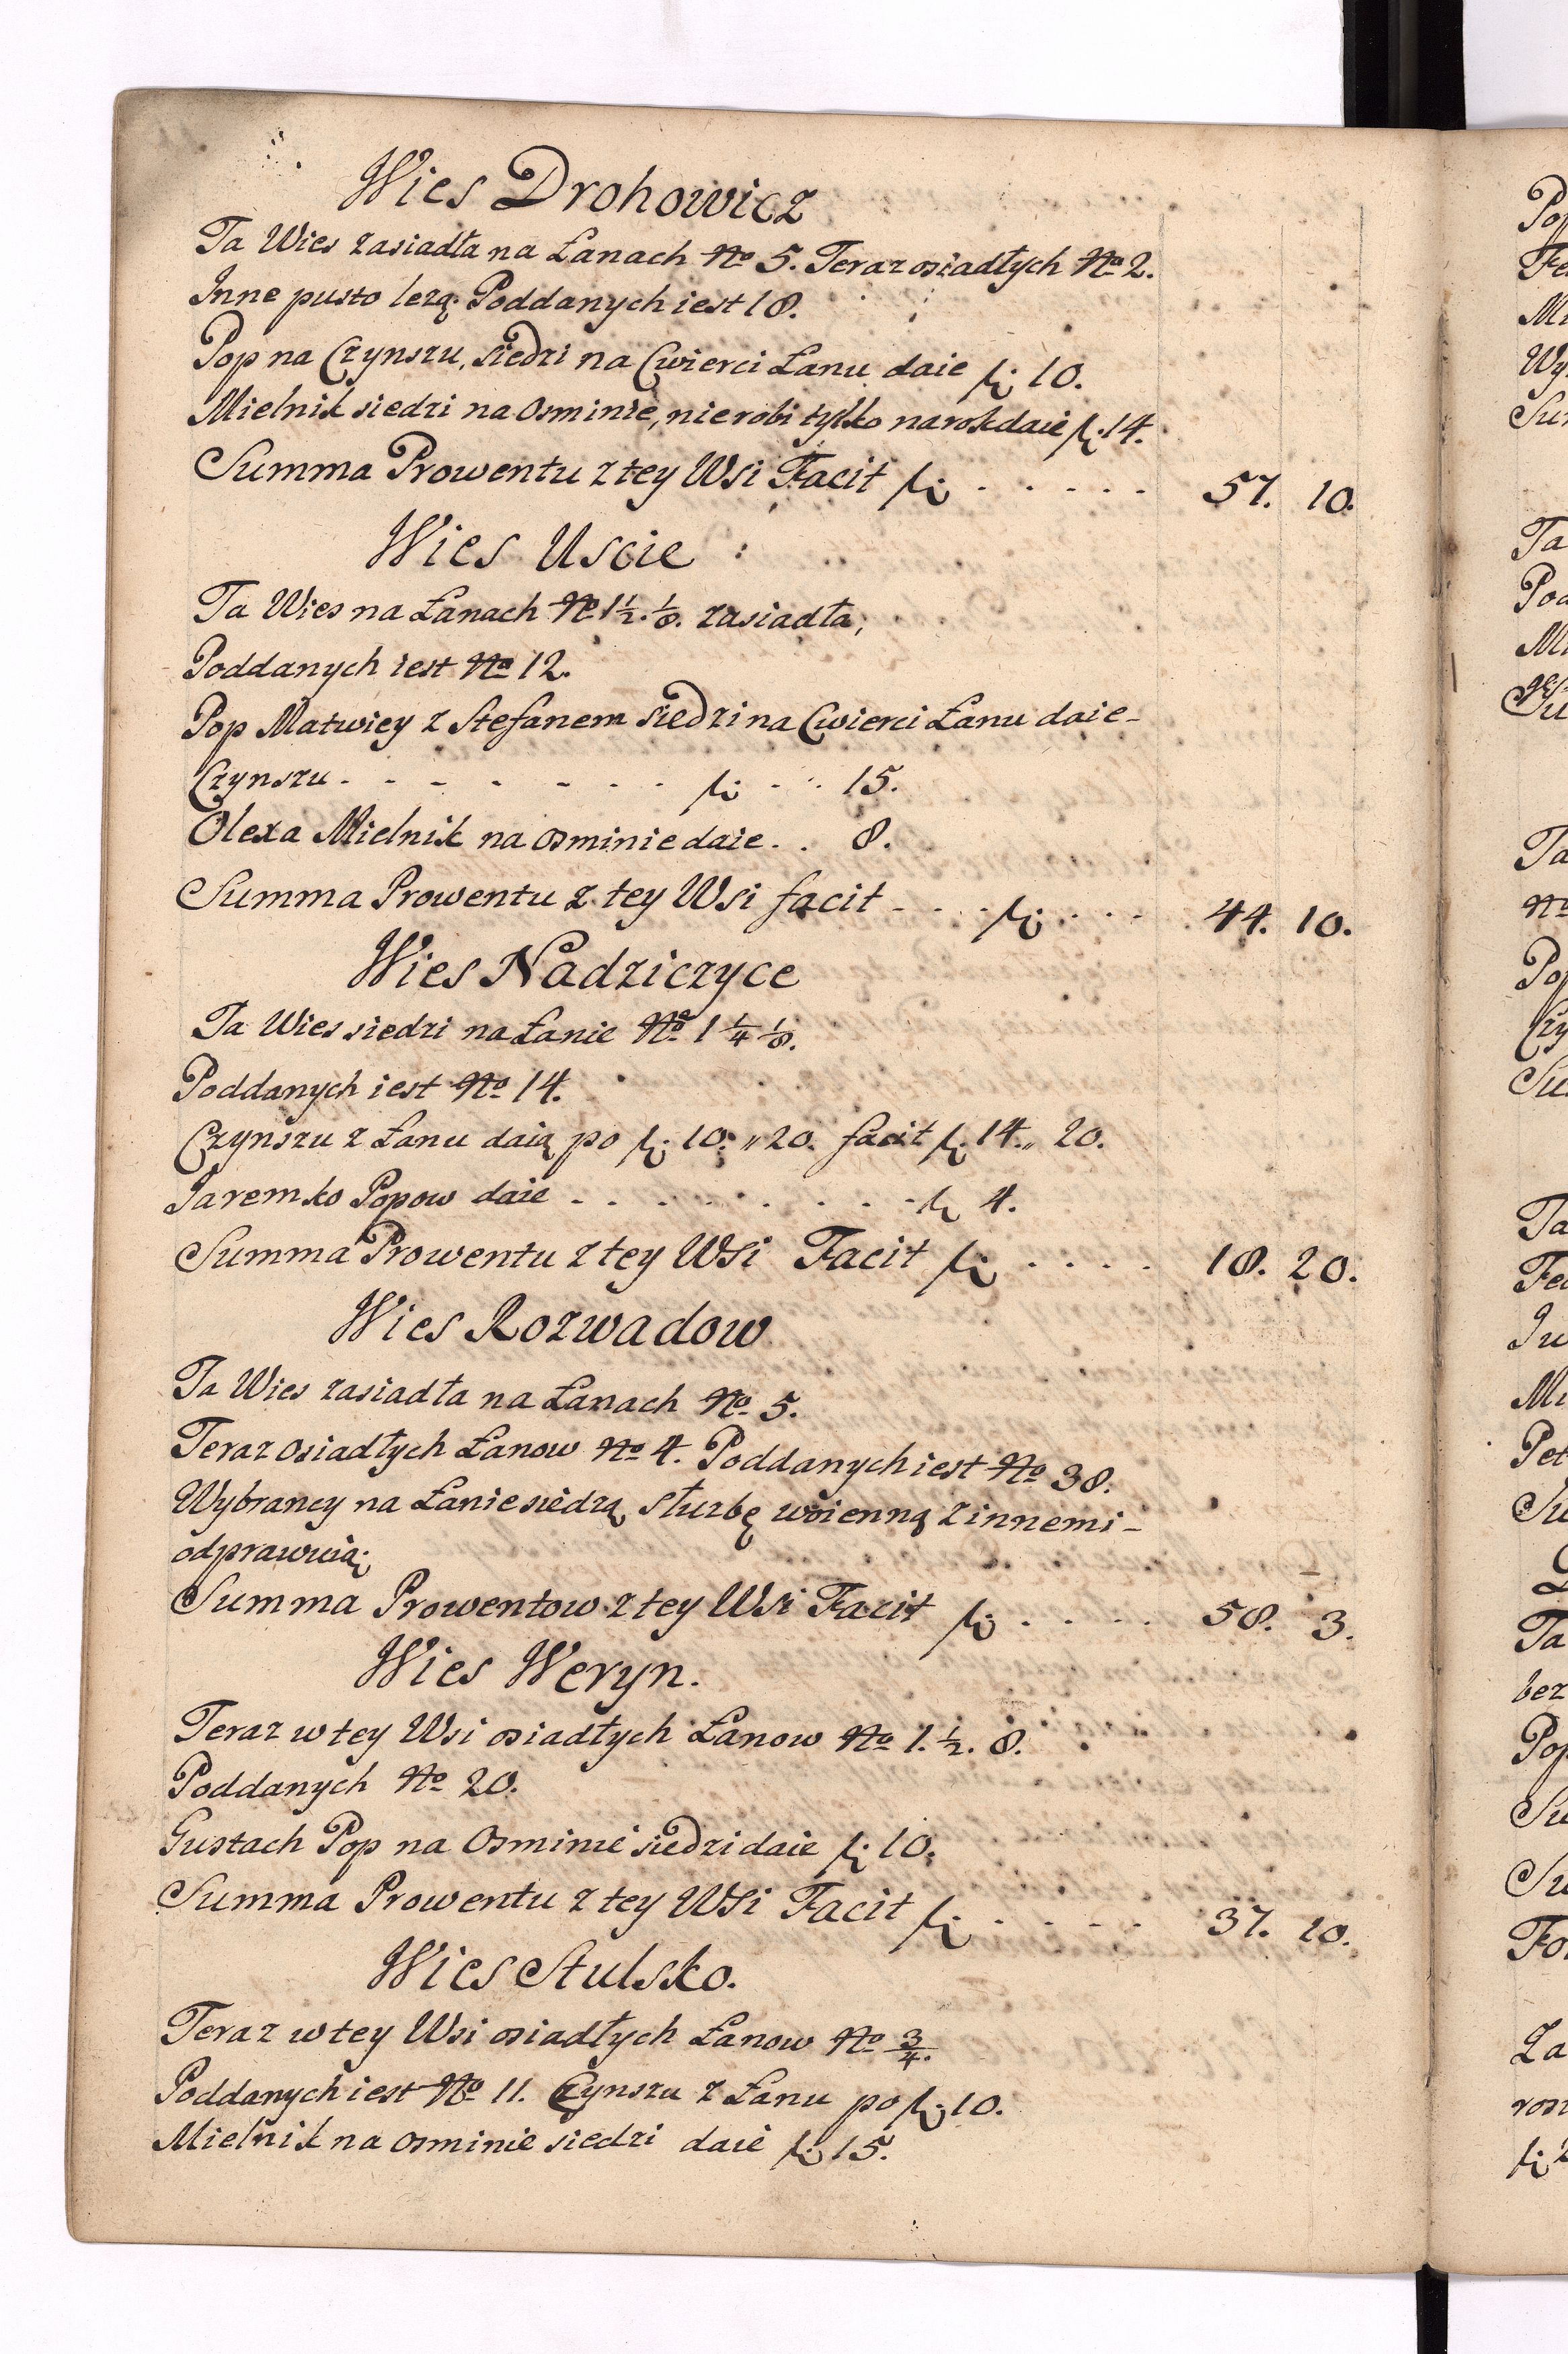 Wies Drohowicz
Ta Wies zasiadła na Łanach No 5. Teraz osiadłych No 2.
Inne pusto lezą. Poddanych iest 18.
Pop na Czynszu, siedzi na Cwierci Łanu daie f: 10.
Mielnik siedzi na Osminie, nie robi tylko na rok daie f: 14.
Summa Prowentu z tey Wsi Facit f: . . . . . 57. 10.
Wies Uscie
Ta Wies na Łanach No 1 1/2. 1/8. zasiadła,
Poddanych iest No 12.
Pop Matwiey z Stefanem siedzi na Cwierci Łanu daie-
Czynszu . - - - - . . . f: - . . 15.
Olexa Mielnik na osminie daie . . 8.
Summa Prowentu z tey Wsi facit - - . f: . . . - 44. 10.
Wies Nadziczyce
Ta Wies siedzi na Łanie No 1 1/4 1/8.
Poddanych iest No 14.
Czynszu z Łanu daią po f: 10. „ 20. facit f: 14. „ 20.
Jaremko Popow daie - . . . . . . . . - f: 4.
Summa Prowentu z tey Wsi Facit f: . . . . 18. 20.
Wies Rozwadow
Ta Wies zasiadła na Łanach No 5.
Teraz osiadłych Łanow No 4. Poddanych iest No 38.
Wybrancy na Łanie siedzą, Służbę woienną z innemi-
odprawuią.
Summa Prowentow z tey Wsi Facit f: . . . . 58. 3.
Wies Weryn.
Teraz w tey Wsi osiadłych Łanow No 1. 1/2. 8.
Poddanych No 20.
Gustach Pop na Osminie siedzi daie f: 10.
Summa Prowentu z tey Wsi Facit f: . . . . 37. 10.
Wies Stulsko.
Teraz w tey Wsi osiadłych Łanow No 3/4.
Poddanych iest No 11. Czynszu z Łanu po f: 10.
Mielnik na osminie siedzi daie f: 15.